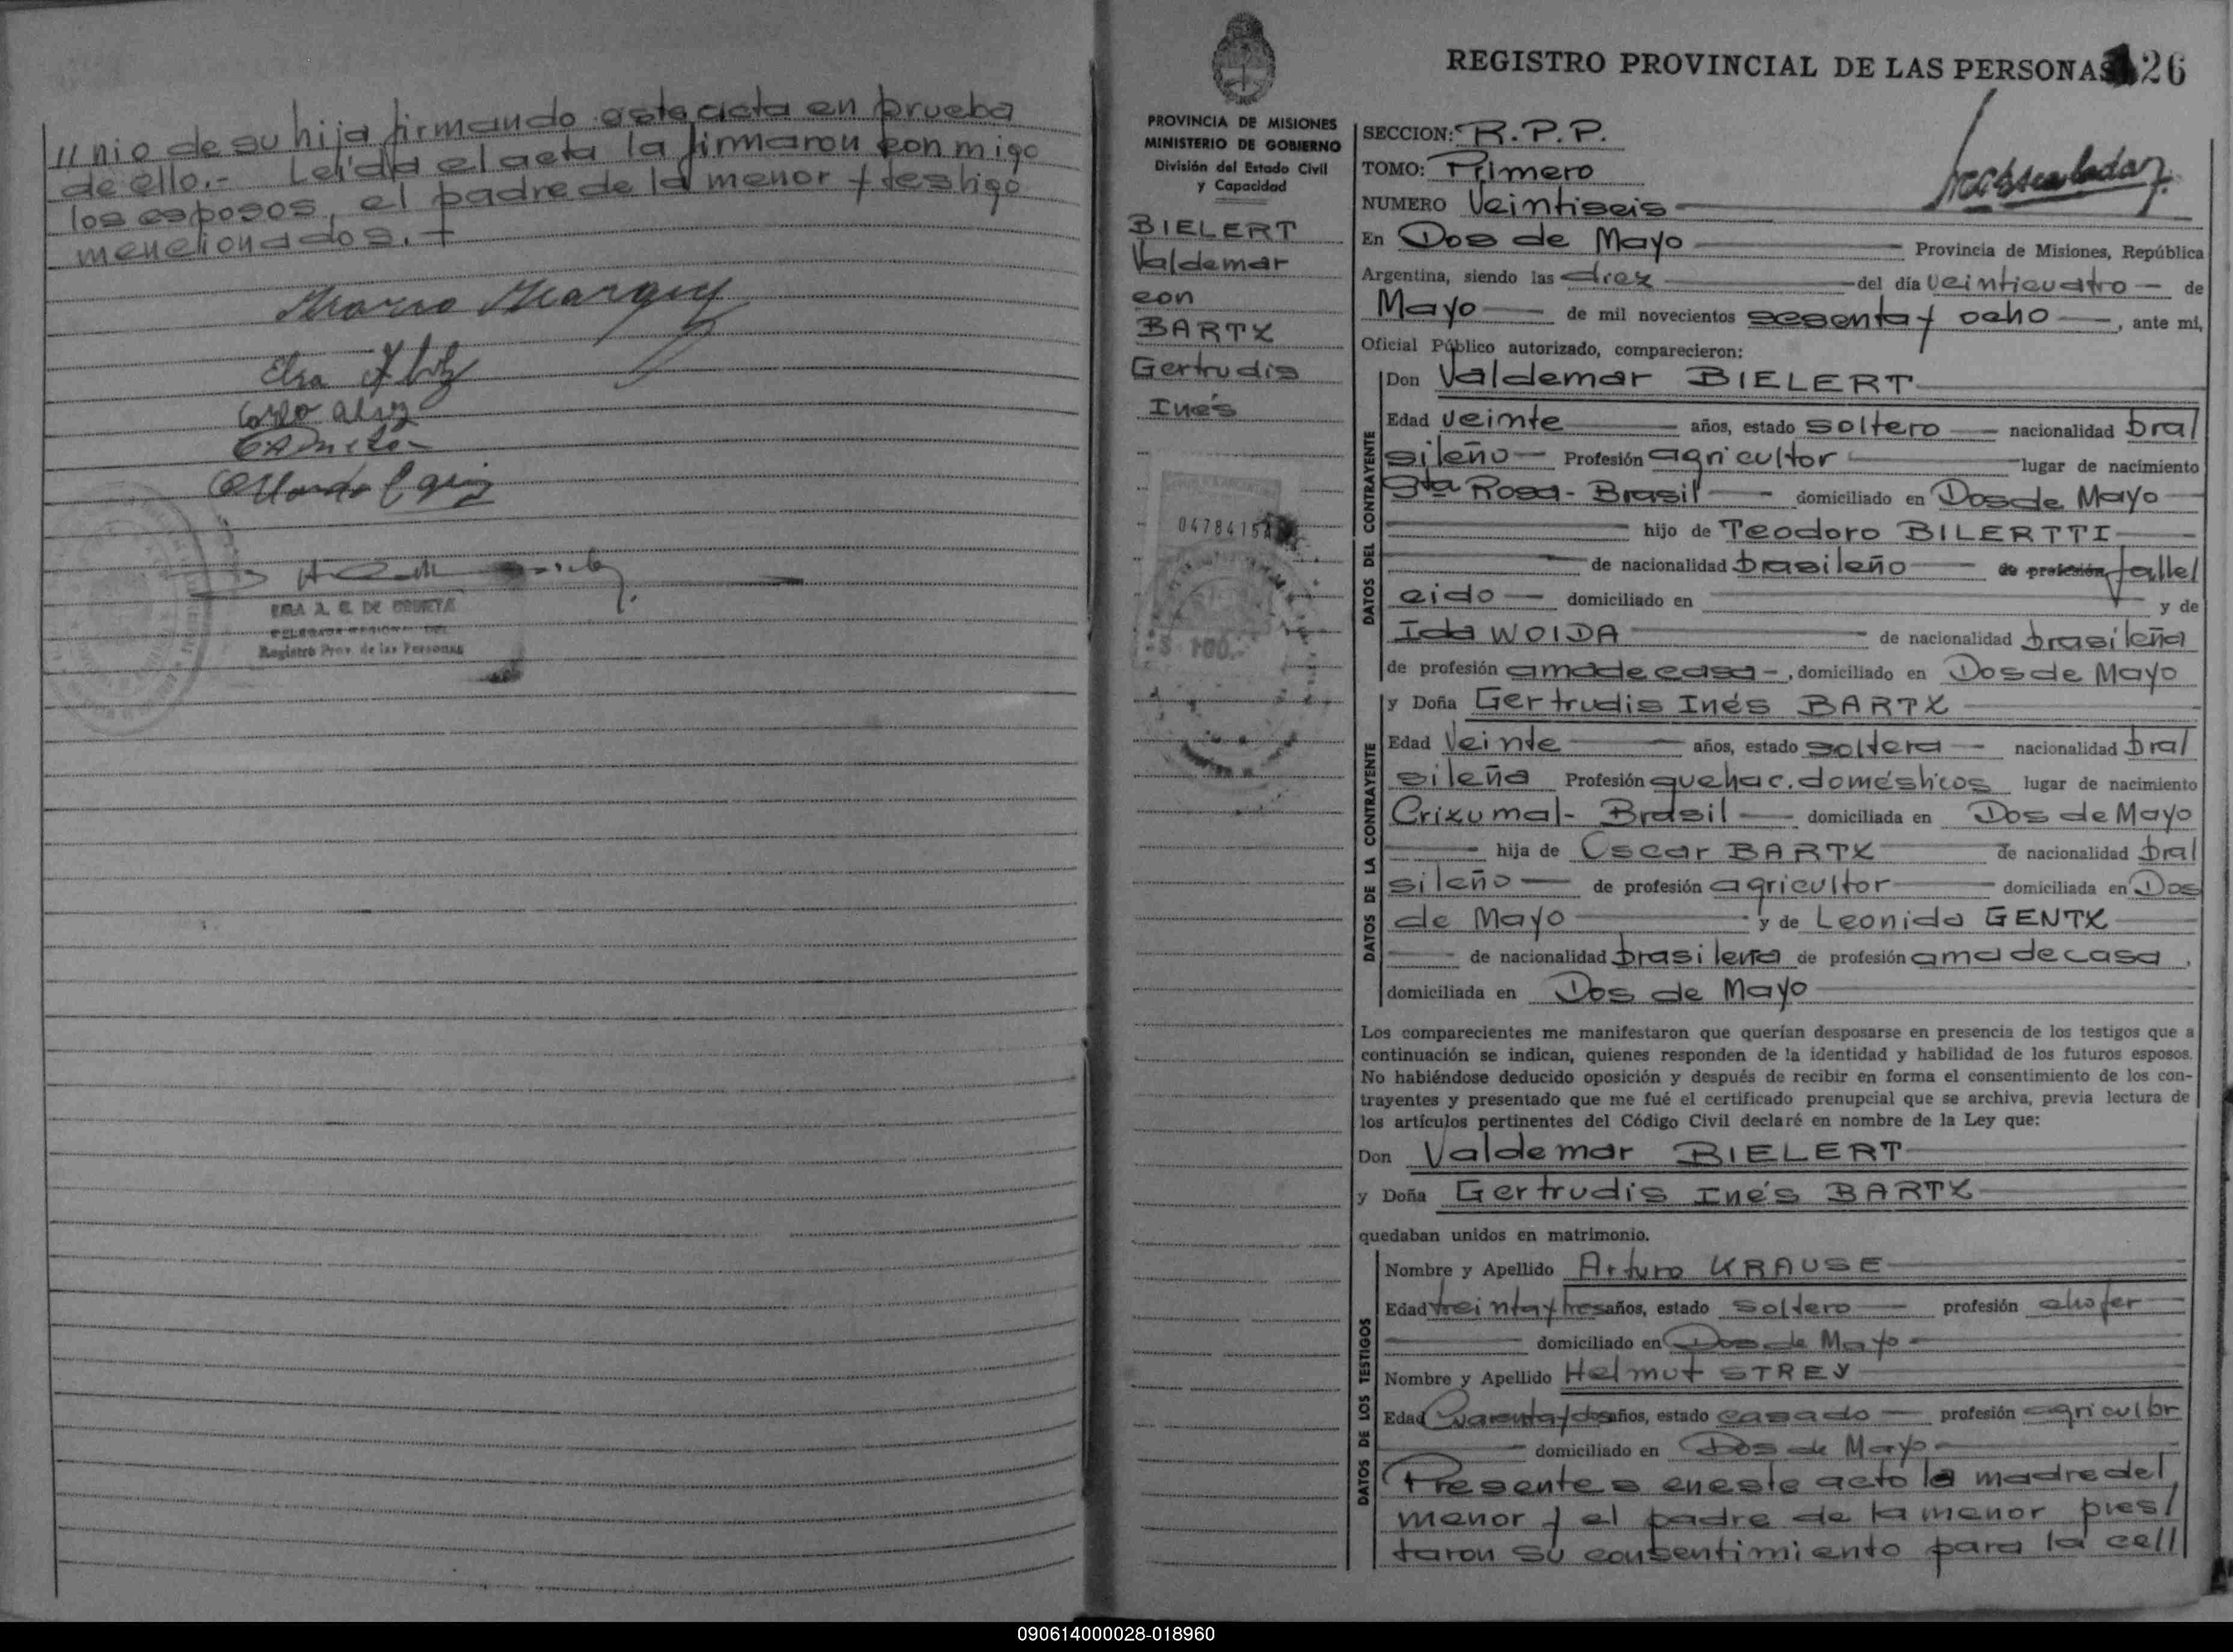 // nio de su hija firmando este acta en prueba
de ello.- Leida el acta la firmaron conmigo
los esposos, el padre de la menor y testigo
mencionados.-
Elsa
ERA A. G. DE
DELEGADA
Registro Prov. de las Personas
REGISTRO PROVINCIAL DE LAS PERSONAS 26
PROVINCIA DE MISIONES
MINISTERIO DE GOBIERNO
División del Estado Civil
y Capacidad
BIELERT
Valdemar
con
BARTZ
Gertrudis
Inés
0478415
$ 100.-
SECCION: R.P.P.
TOMO: Primero
NUMERO Veintiseis
En Dos de Mayo Provincia de Misiones, República
Argentina, siendo las diez del día veinticuatro de
Mayo de mil novecientos sesenta y ocho, ante mi,
Oficial Público autorizado, comparecieron:
DATOS DEL CONTRAYENTE
Don Valdemar BIELERT
Edad veinte años, estado soltero nacionalidad bra/
sileño Profesión agricultor lugar de nacimiento
Sta Rosa - Brasil domiciliado en Dos de Mayo
hijo de Teodoro BILERTTI
de nacionalidad brasileño de profesión falle/
cido domiciliado en y de
Ida WOIDA de nacionalidad brasileña
de profesión ama de casa, domiciliado en Dos de Mayo
DATOS DE LA CONTRAYENTE
y Doña Gertrudis Inés BARTZ
Edad Veinte años, estado soltera nacionalidad bra/
sileña Profesión quehac. domésticos lugar de nacimiento
Crixumal - Brasil domiciliada en Dos de Mayo
hija de Oscar BARTZ de nacionalidad bra/
sileño de profesión agricultor domiciliada en Dos
de Mayo y de Leonida GENTZ
de nacionalidad brasileña de profesión ama de casa,
domiciliada en Dos de Mayo
Los comparecientes me manifestaron que querían desposarse en presencia de los testigos que a
continuación se indican, quienes responden de la identidad y habilidad de los futuros esposos.
No habiéndose deducido oposición y después de recibir en forma el consentimiento de los con-
trayentes y presentado que me fué el certificado prenupcial que se archiva, previa lectura de
los artículos pertinentes del Código Civil declaré en nombre de la Ley que:
Don Valdemar BIELERT
y Doña Gertrudis Inés BARTZ
quedaban unidos en matrimonio.
DATOS DE LOS TESTIGOS
Nombre y Apellido Arturo KRAUSE
Edad treinta y tres años, estado soltero profesión chofer
domiciliado en Dos de Mayo
Nombre y Apellido Helmut STREY
Edad Cuarenta y dos años, estado casado profesión agricultor
domiciliado en Dos de Mayo
Presentes en este acto la madre del
menor y el padre de la menor pres/
taron su consentimiento para la cel//
090614000028-018960